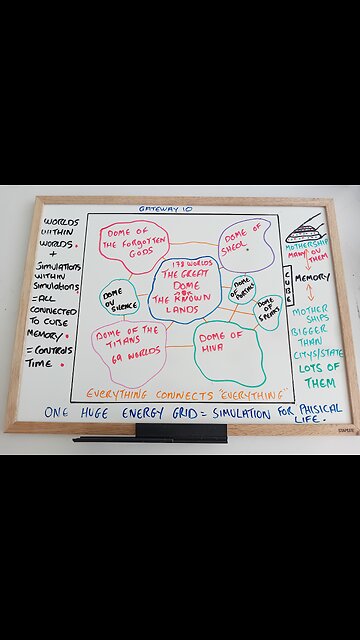 GATEWAY 10
WORLDS
WITHIN
WORLDS.
+
SIMULATIONS
WITHIN
SIMULATIONS.
=ALL
CONNECTED
TO CUBE
MEMORY.
=CONTROLS
TIME.
DOME OF
THE FORGOTTEN
GODS
DOME OF
SHEOL.
178 WORLDS
THE GREAT
DOME
OR
THE KNOWN
LANDS
DOME
OF
DOME OV
SILENCE
DOME
OF
SPEARS
DOME OF THE
TITANS
69 WORLDS
DOME OF
HIVA
EVERYTHING CONNECTS "EVERYTHING"
CUBE
MOTHERSHIP
MANY ON
THEM
MEMORY
MOTHER
SHIPS
BIGGER
THAN
CITYS/STATE
LOTS OF
THEM
ONE HUGE ENERGY GRID = SIMULATION FOR PHISICAL
LIFE.